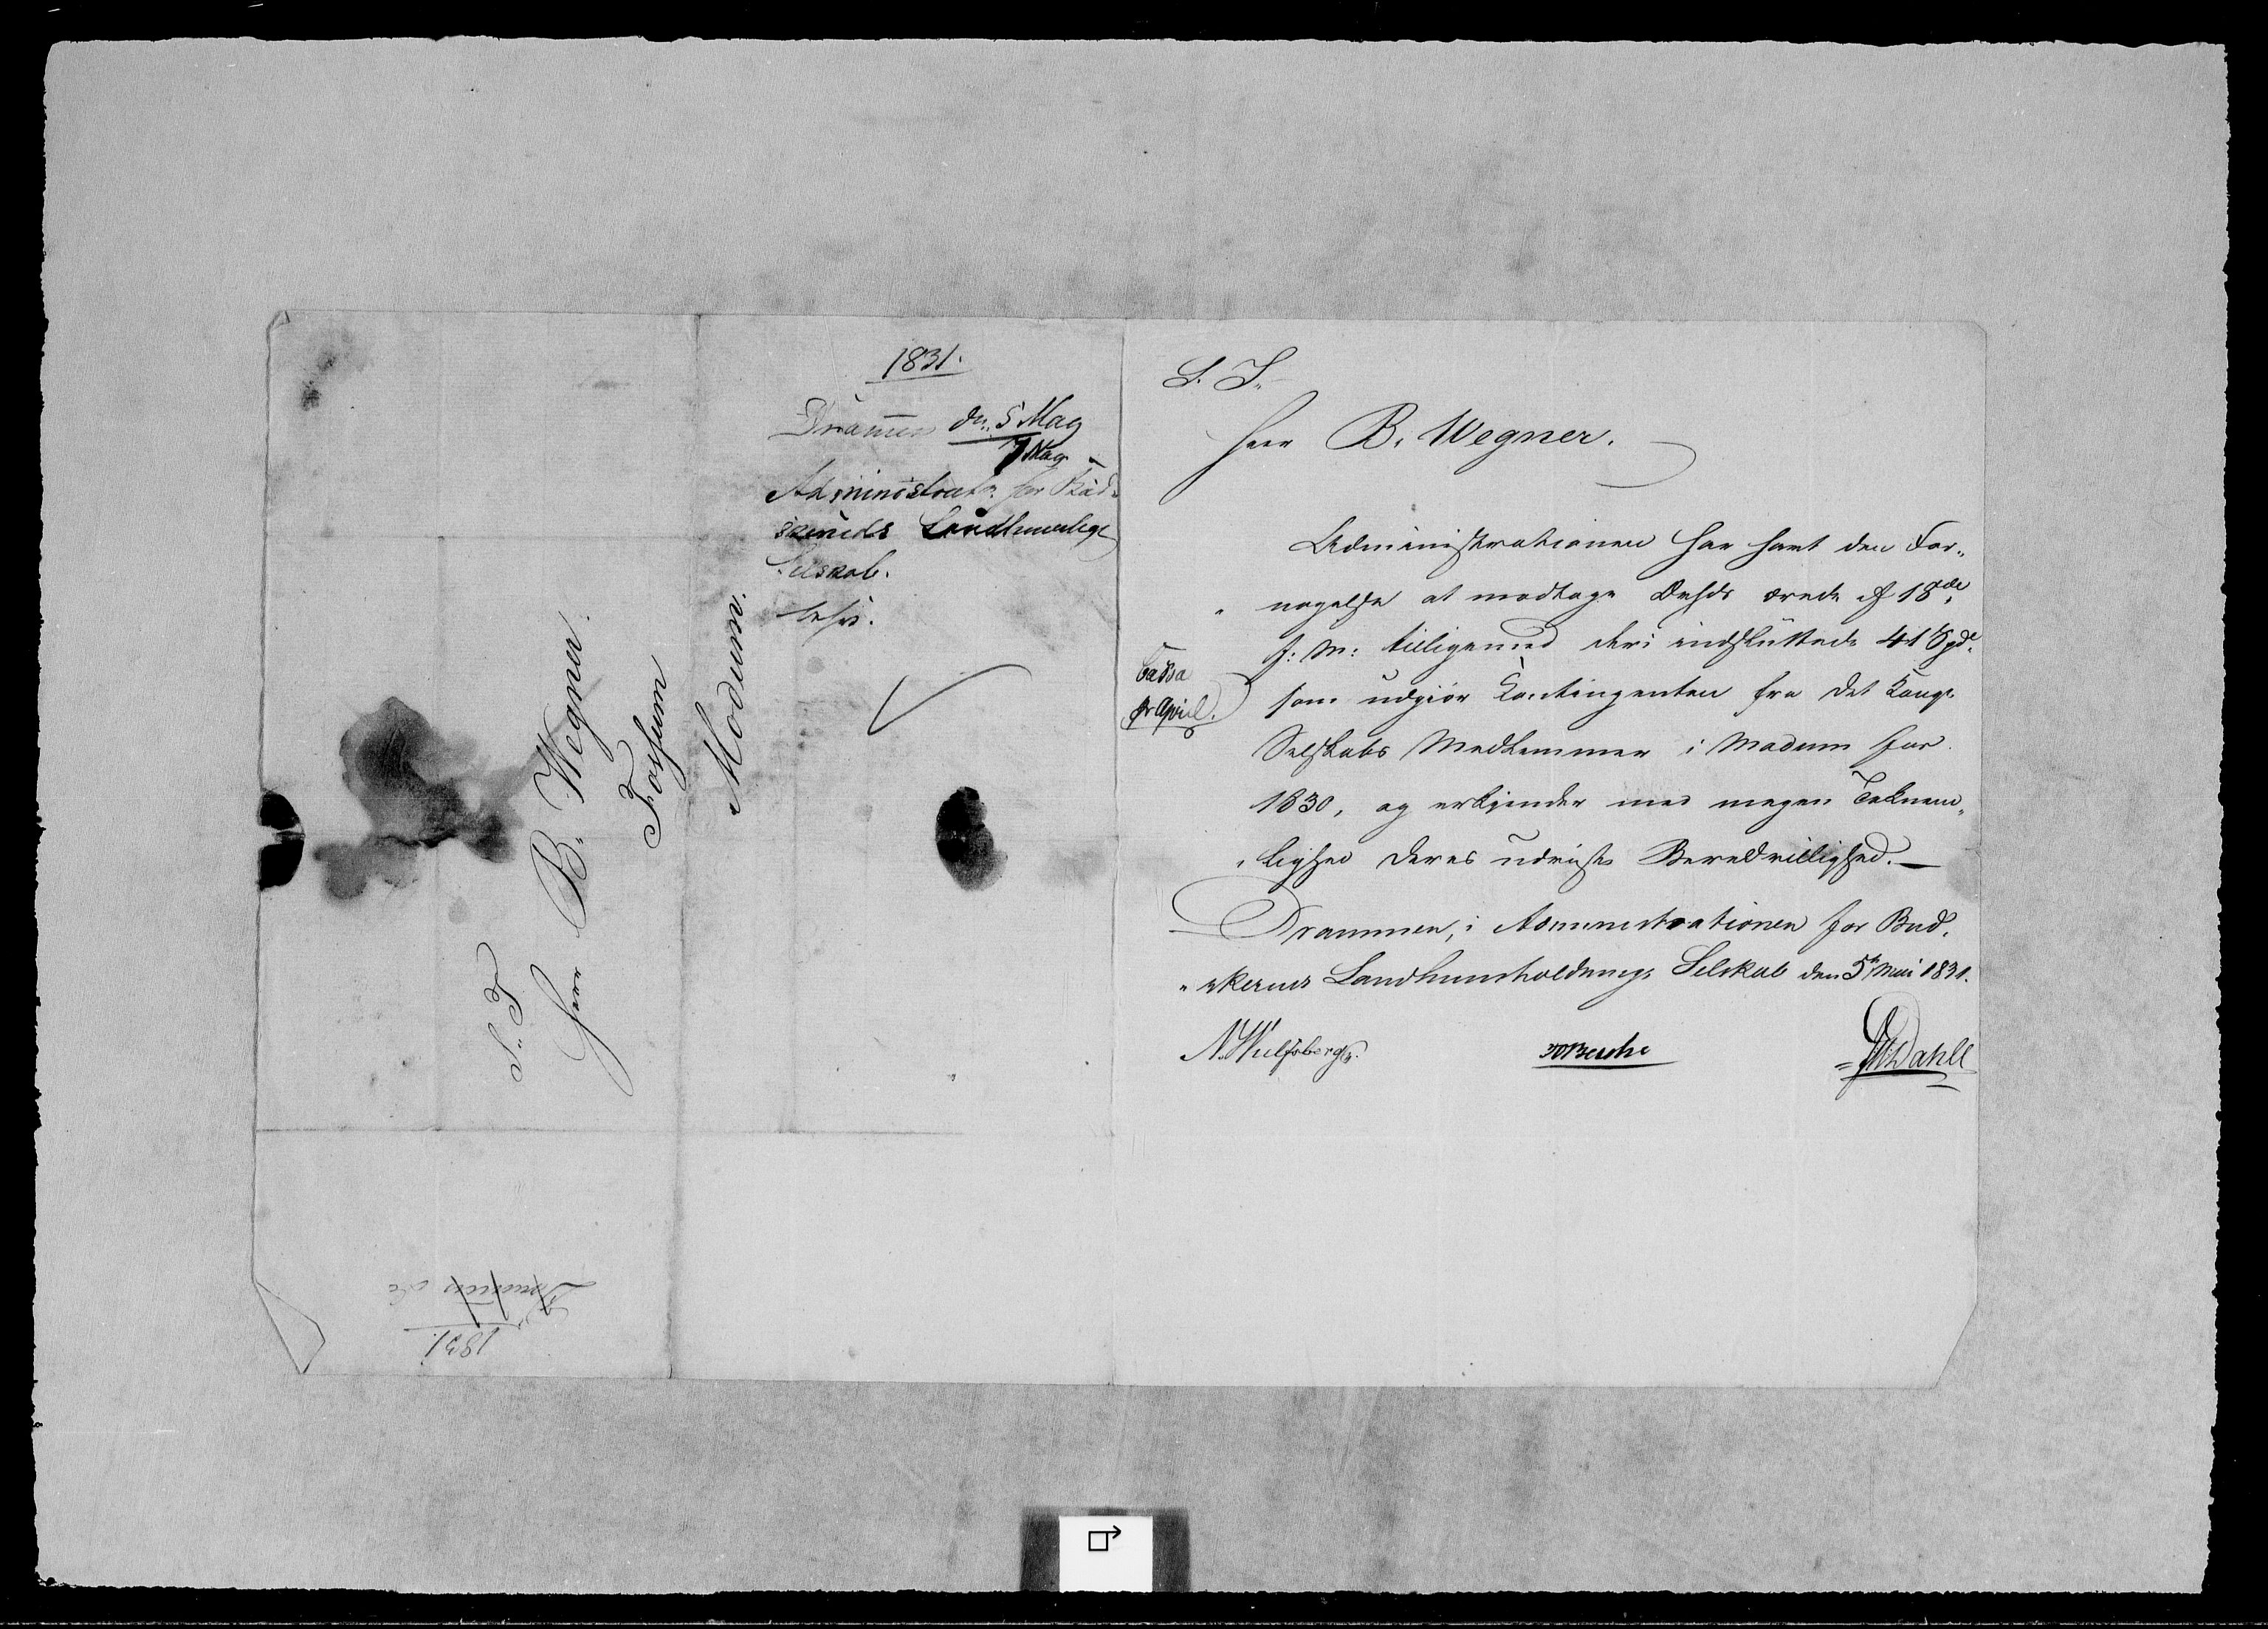 1831.
Drammen dn. 5 May
7 May
Administrat. for Bud-
skeruds Landhuusholgs
Selskab.
S. T.
Herr B. Wegner.
Fossum
Modum.
1831.
Drammen de
S. T.
Herr B. Wegner.
Administrationen har havt den For-
nøyelse at modtage Deres ærede af 18de
f: M: tilligemed deri indsluttede 41 Spd.
Cassa
pr April.
som udgiør Contingenten fra det Kongl.
Selskabs Medlemmer i Modum for
1830, og erkjender med megen Taknem-
"lighed Deres udviste Beredvillighed.—
Drammen, i Administrationen for Bud-
"skeruds Landhuusholdnings Selskab den 5te Mai 1831.
N. Wulfsberg
Dahll